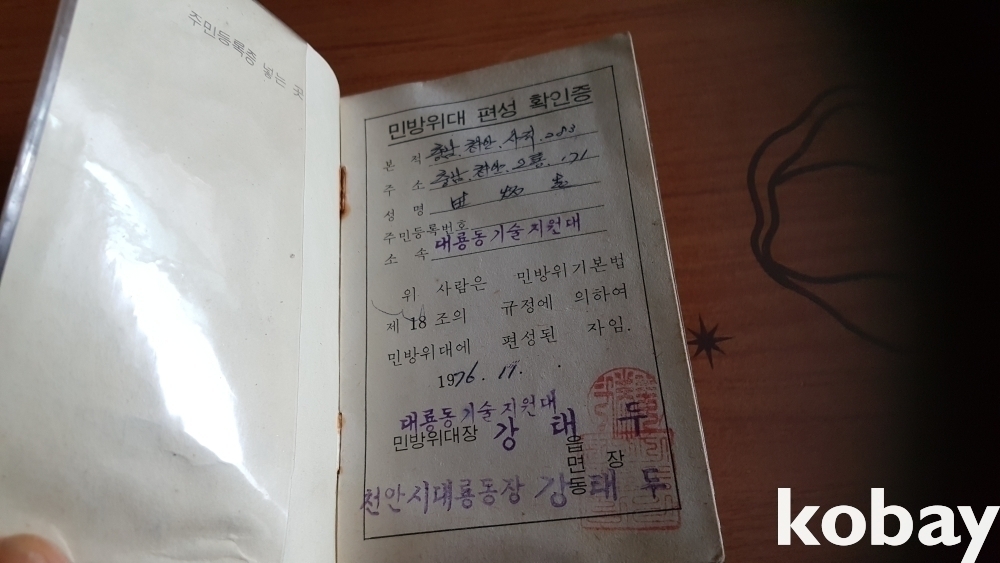 주민등록증 넣는 곳
민방위대 편성 확인증
본 적 충남 천안
주 소 충남 천안
성 명
주민등록번호
소 속 대룡동기술지원대
위 사람은 민방위기본법
제 18 조의 규정에 의하여
민방위대에 편성된 자임.
1976. 11. .
대룡동기술지원대
민방위대장 강 태 두
읍
면 장
동
천안시대룡동장 강 태 두
kobay